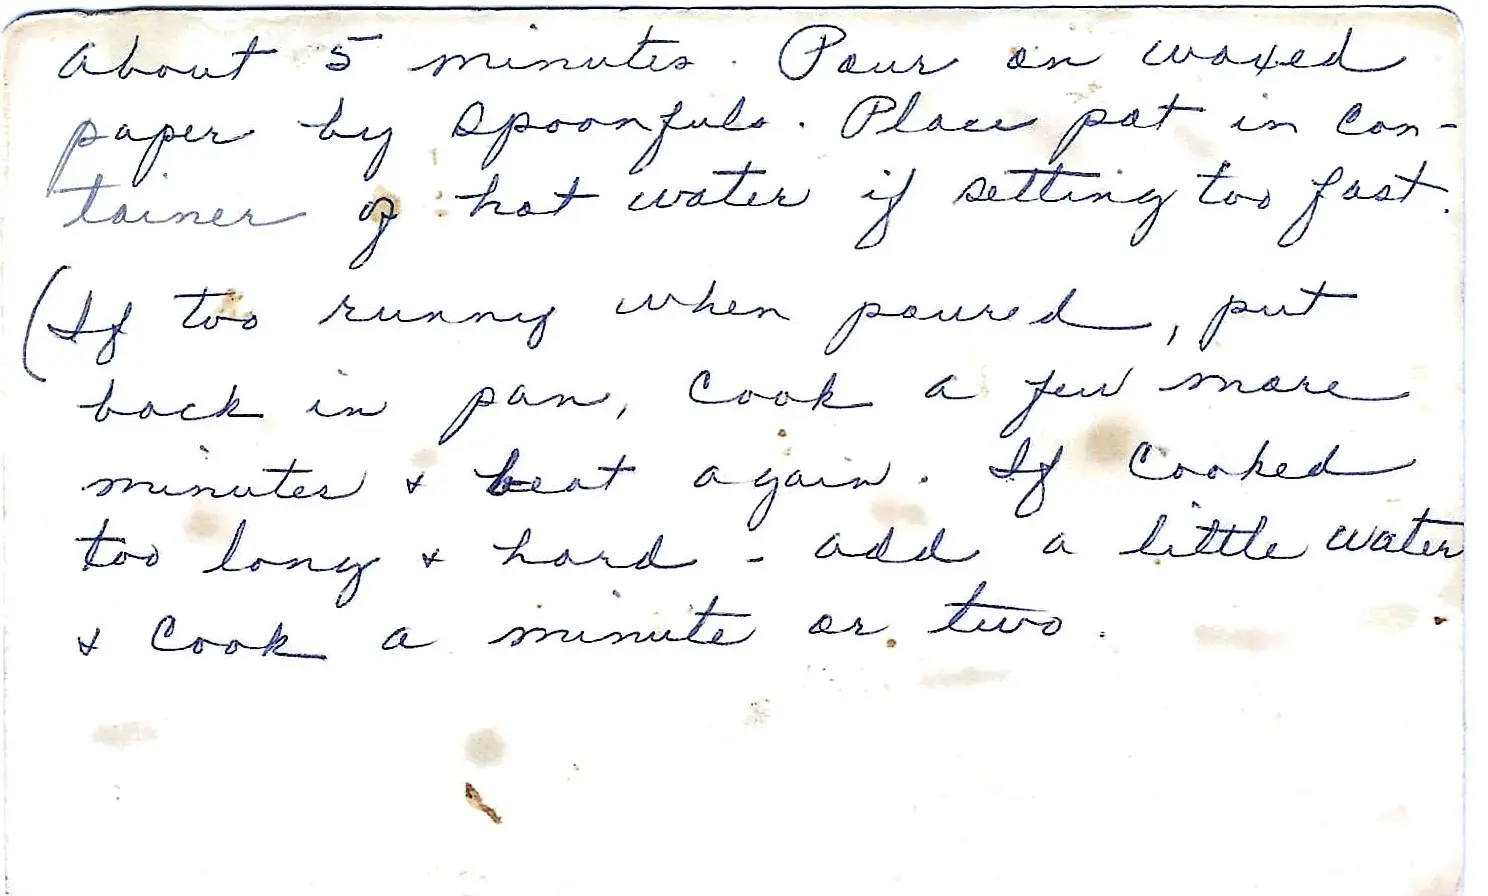 about 5 minutes. Pour on waxed
paper by spoonfuls. Place pot in con-
tainer of hot water if setting too fast.
(If too runny when poured, put
back in pan, cook a few more
minutes & beat again. If cooked
too long & hard - add a little water
& cook a minute or two.